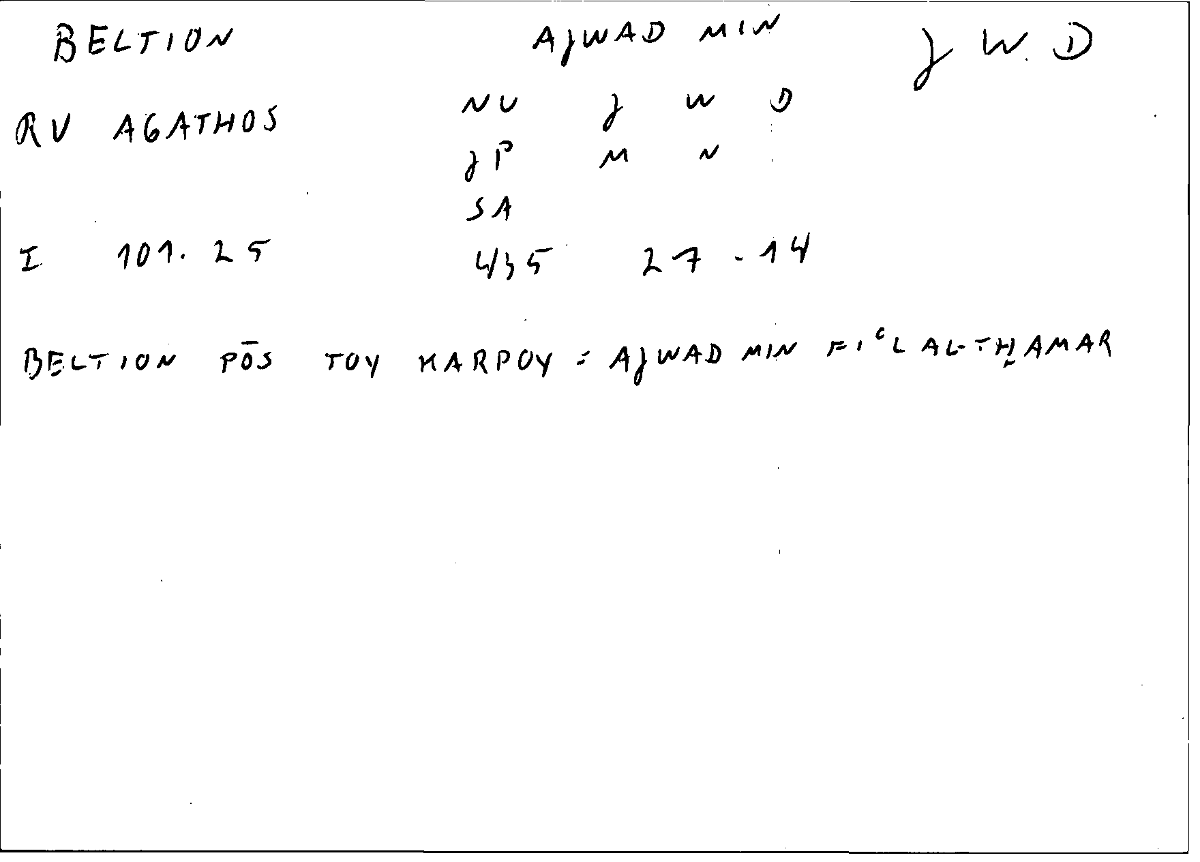 BELTION AJWAD MIN J W D
RV AGATHOS NU J W D
JP M N
SA
I 101.25 435 27-14
BELTION PŌS TOY KARPOY = AJWAD MIN FIᶜL AL-THAMAR